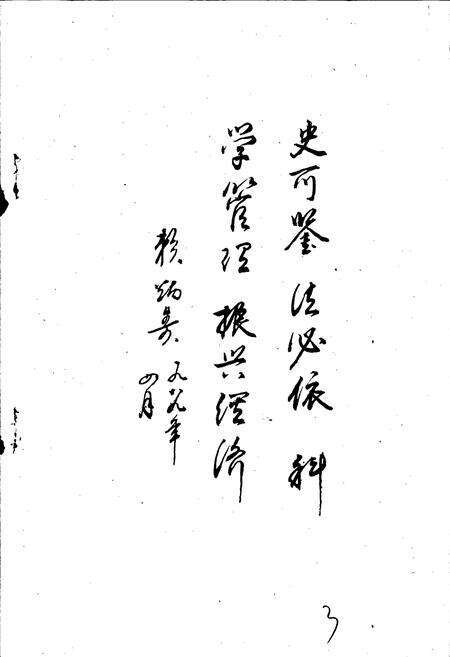 史可鉴 法必依 科
学管理 振兴经济
赖炳
九八九年
四月
3